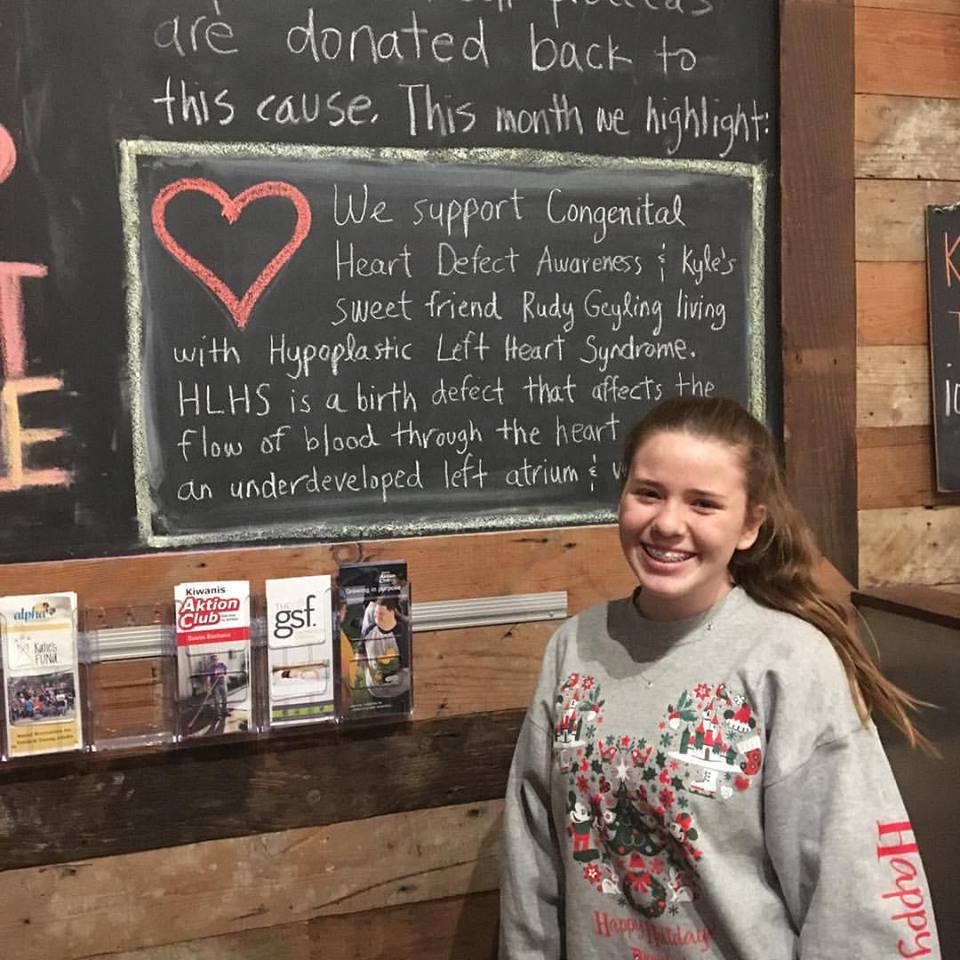 are donated back to
this cause. This month we highlight:
We support Congenital
Heart Defect Awareness & Kyle's
sweet friend Rudy Geyling living
with Hypoplastic Left Heart Syndrome.
HLHS is a birth defect that affects the
flow of blood through the heart
an underdeveloped left atrium &
E
alpha
Katie's
FUND
Kiwanis
Aktion
Club
Santa Barbara
gsf.
Growing in purpose
Happy Holidays
Happy
K